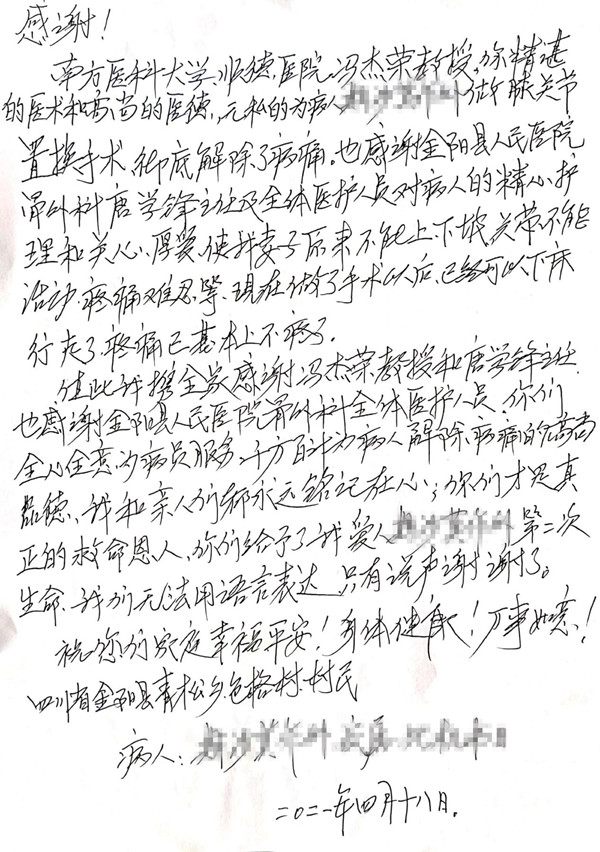 感谢！
南方医科大学、顺德医院冯杰荣教授，你精湛
的医术和高尚的医德，无私的为病人 做膝关节
置换手术，彻底解除了病痛。也感谢金阳县人民医院
骨外科唐学锋主任及全体医护人员对病人的精心护
理和关心、厚爱，使我妻子原来不能上、下坡，关节不能
活动，疼痛难忍等，现在做了手术以后，已经可以下床
行走了，疼痛已基本上不疼了。
值此我携全家感谢冯杰荣教授和唐学锋主任，
也感谢金阳县人民医院骨外科全体医护人员，你们
全心全意为病员服务，千方百计为病人解除疼痛的高尚
品德，我和亲人们都永远铭记在心；你们才是真
正的救命恩人，你们给予了我爱人 第二次
生命，我们无法用语言表达，只有说声谢谢了。
祝您们家庭幸福平安！身体健康！万事如意！
四川省金阳县青松乡色格村村民
病人：
二〇二一年四月十八日。